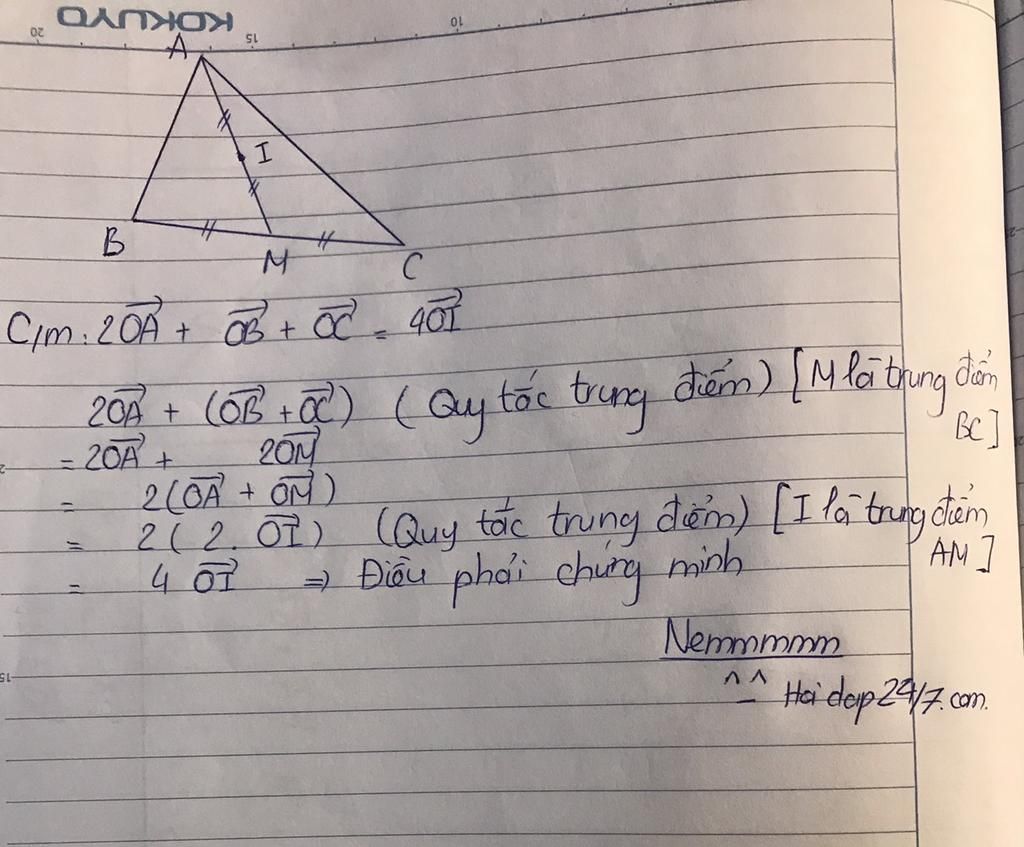 KOKUYO
20 15 10
A
I
B
M
C
C/m: 2OA + OB + OC = 4OI
2OA + (OB + OC) (Quy tắc trung điểm) [M là trung điểm BC]
= 2OA + 2OM
= 2(OA + OM)
= 2(2.OI) (Quy tắc trung điểm) [I là trung điểm AM]
= 4OI ⇒ Điều phải chứng minh
15
Nemmmmm
^_^ Hoidap247.com